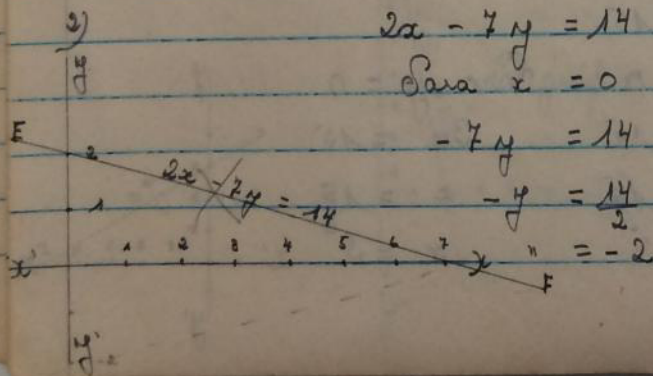 2) 2x - 7y = 14
Para x = 0
- 7y = 14
- y = 14/2
" = - 2
y
E
2
2x - 7y = 14
1
x' 1 2 3 4 5 6 7 x
F
y'